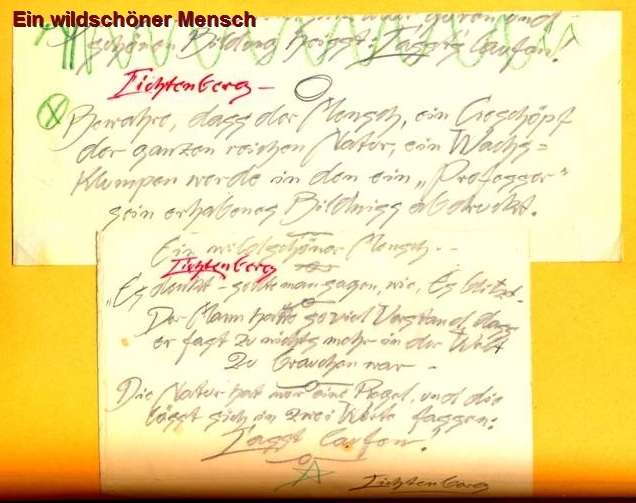 Ein wildschöner Mensch
schönen Bildung heisst: Lasst's laufen!
Lichtenberg -
Bewahre, dass der Mensch, ein Geschöpf
der ganzen reichen Natur, ein Wachs=
Klumpen werde in den ein „Professor"
sein erhabenes Bildniss abdruckt.
Ein wildschöner Mensch -
Lichtenberg
„Es denkt - sollte man sagen, wie, Es blitzt.
Der Mann hatte soviel Verstand, dass
er fast zu nichts mehr in der Welt
zu brauchen war -
Die Natur hat nur eine Regel, und die
lässt sich in zwei Worte fassen:
Lasst laufen!
Lichtenberg